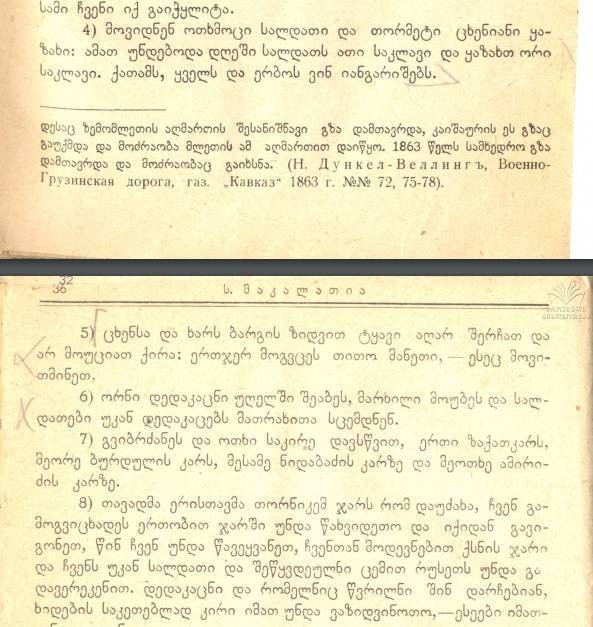 სამი ჩვენი იქ გაიჭყლიტა.
4) მოვიდნენ ოთხმოცი სალდათი და თორმეტი ცხენიანი ყა-
ზახი: ამათ უნდებოდა დღეში სალდათს ათი საკლავი და ყაზახთ ორი
საკლავი. ქათამს, ყველს და ერბოს ვინ იანგარიშებს.
დესაც ზემომლეთის აღმართის შესანიშნავი გზა დამთავრდა, კაიშაურის ეს გზაც
გაუქმდა და მოძრაობა მლეთის ამ აღმართით დაიწყო. 1863 წელს სამხედრო გზა
დამთავრდა და მოძრაობაც გაიხსნა. (Н. Дункел-Веллингъ, Военно-
Грузинская дорога, газ. „Кавказ“ 1863 г. №№ 72, 75-78).
32
36
ს. მაკალათია
5) ცხენსა და ხარს ბარგის ზიდვით ტყავი აღარ შერჩათ და
არ მოუციათ ქირა: ერთჯერ მოგვცეს თითო მანეთი, — ესეც მოვი-
თმინეთ.
6) ორნი დედაკაცნი უღელში შეაბეს, მარხილი მოუბეს და სალ-
დათები უკან დედაკაცებს მათრახითა სცემდნენ.
7) გვიბრძანეს და ოთხი საკირე დავსწვით, ერთი ზაქათკარს,
მეორე ბურდულის კარს, მესამე ნიდაბაძის კარზე და მეოთხე ამირი-
ძის კარზე.
8) თავადმა ერისთავმა თორნიკემ ჯარს რომ დაუძახა, ჩვენ გა-
მოგვიცხადეს ერთობით ჯარში უნდა წახვიდეთო და იქიდან გავი-
გონეთ, წინ ჩვენ უნდა წავეყვანეთ, ჩვენთან მოდევნებით ქსნის ჯარი
და ჩვენს უკან სალდათი და შეწყვდეული ცემით რუსეთს უნდა გა
დავერეკენით. დედაკაცნი და რომელნიც წვრილნი შინ დარჩებიან,
ხიდების საკეთებლად კირი იმათ უნდა ვაზიდვინოთო,—ესეები იმათ-